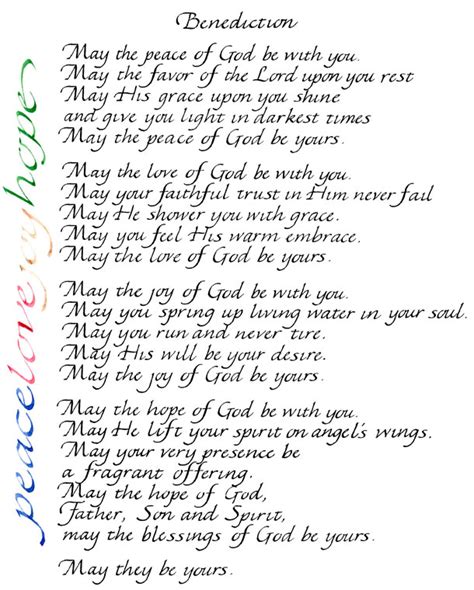 Benediction
May the peace of God be with you.
May the favor of the Lord upon you rest
May His grace upon you shine
and give you light in darkest times
May the peace of God be yours.
May the love of God be with you.
May your faithful trust in Him never fail
May He shower you with grace.
May you feel His warm embrace.
May the love of God be yours.
May the joy of God be with you.
May you spring up living water in your soul.
May you run and never tire.
May His will be your desire.
May the joy of God be yours.
May the hope of God be with you.
May He lift your spirit on angel's wings.
May your very presence be
a fragrant offering.
May the hope of God,
Father, Son and Spirit,
may the blessings of God be yours.
May they be yours.
peace love joy hope